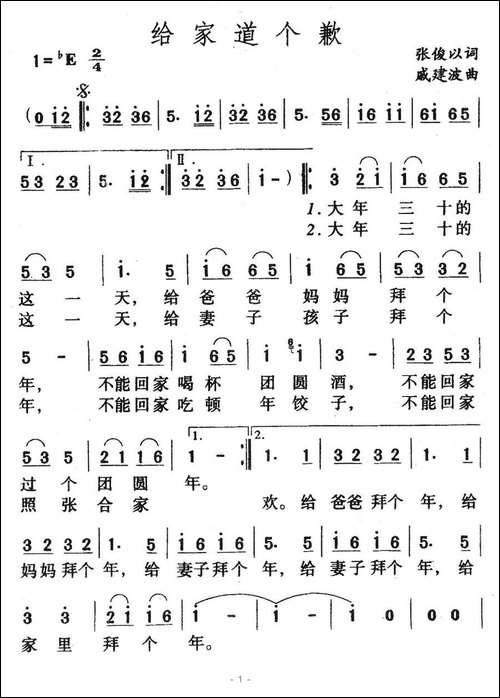 给家道个歉
1=♭E 2/4
张俊以词
戚建波曲
(0 i2 | 32 36 | 5. i2 | 32 36 | 5. 56 | i6 ii | 6i 65 |
I. II.
53 23 | 5. i2 :| 32 36 | i -) | 3 2i | i6 65 |
1.大年 三十的
2.大年 三十的
53 5 | i. 5 | i6 65 | i 65 | 53 32 |
这一天,给爸爸妈妈拜个
这一天,给妻子孩子拜个
5 - | 56 i6 | i 65 | i i | 3 - | 23 53 |
年, 不能回家喝杯团圆酒, 不能回家
年, 不能回家吃顿年饺子, 不能回家
1. 2.
53 5 | 21 16 | 1 - :| 1. 1 | 32 32 | 1. 1 |
过个团圆年。
照张合家 欢。给爸爸拜个年,给
32 32 | 1. 5 | i6 i6 | 5. 5 | i6 i6 | 5. 5 |
妈妈拜个年,给妻子拜个年,给妻子拜个年,给
3 3 | 2i i6 | i - | i - | i 0 | 0 0
家里拜个年。
- 1 -